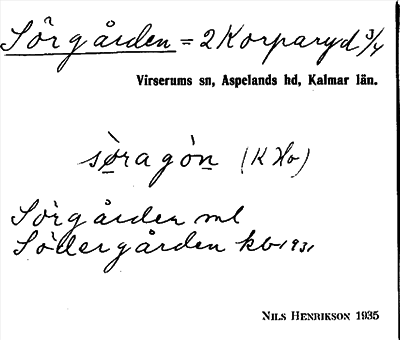 Sörgården = 2 Korparyd 3/4
Virserums sn, Aspelands hd, Kalmar län.
sòragòn (K Ho)
Sörgården ml
Södergården kb 1931
NILS HENRIKSON 1935